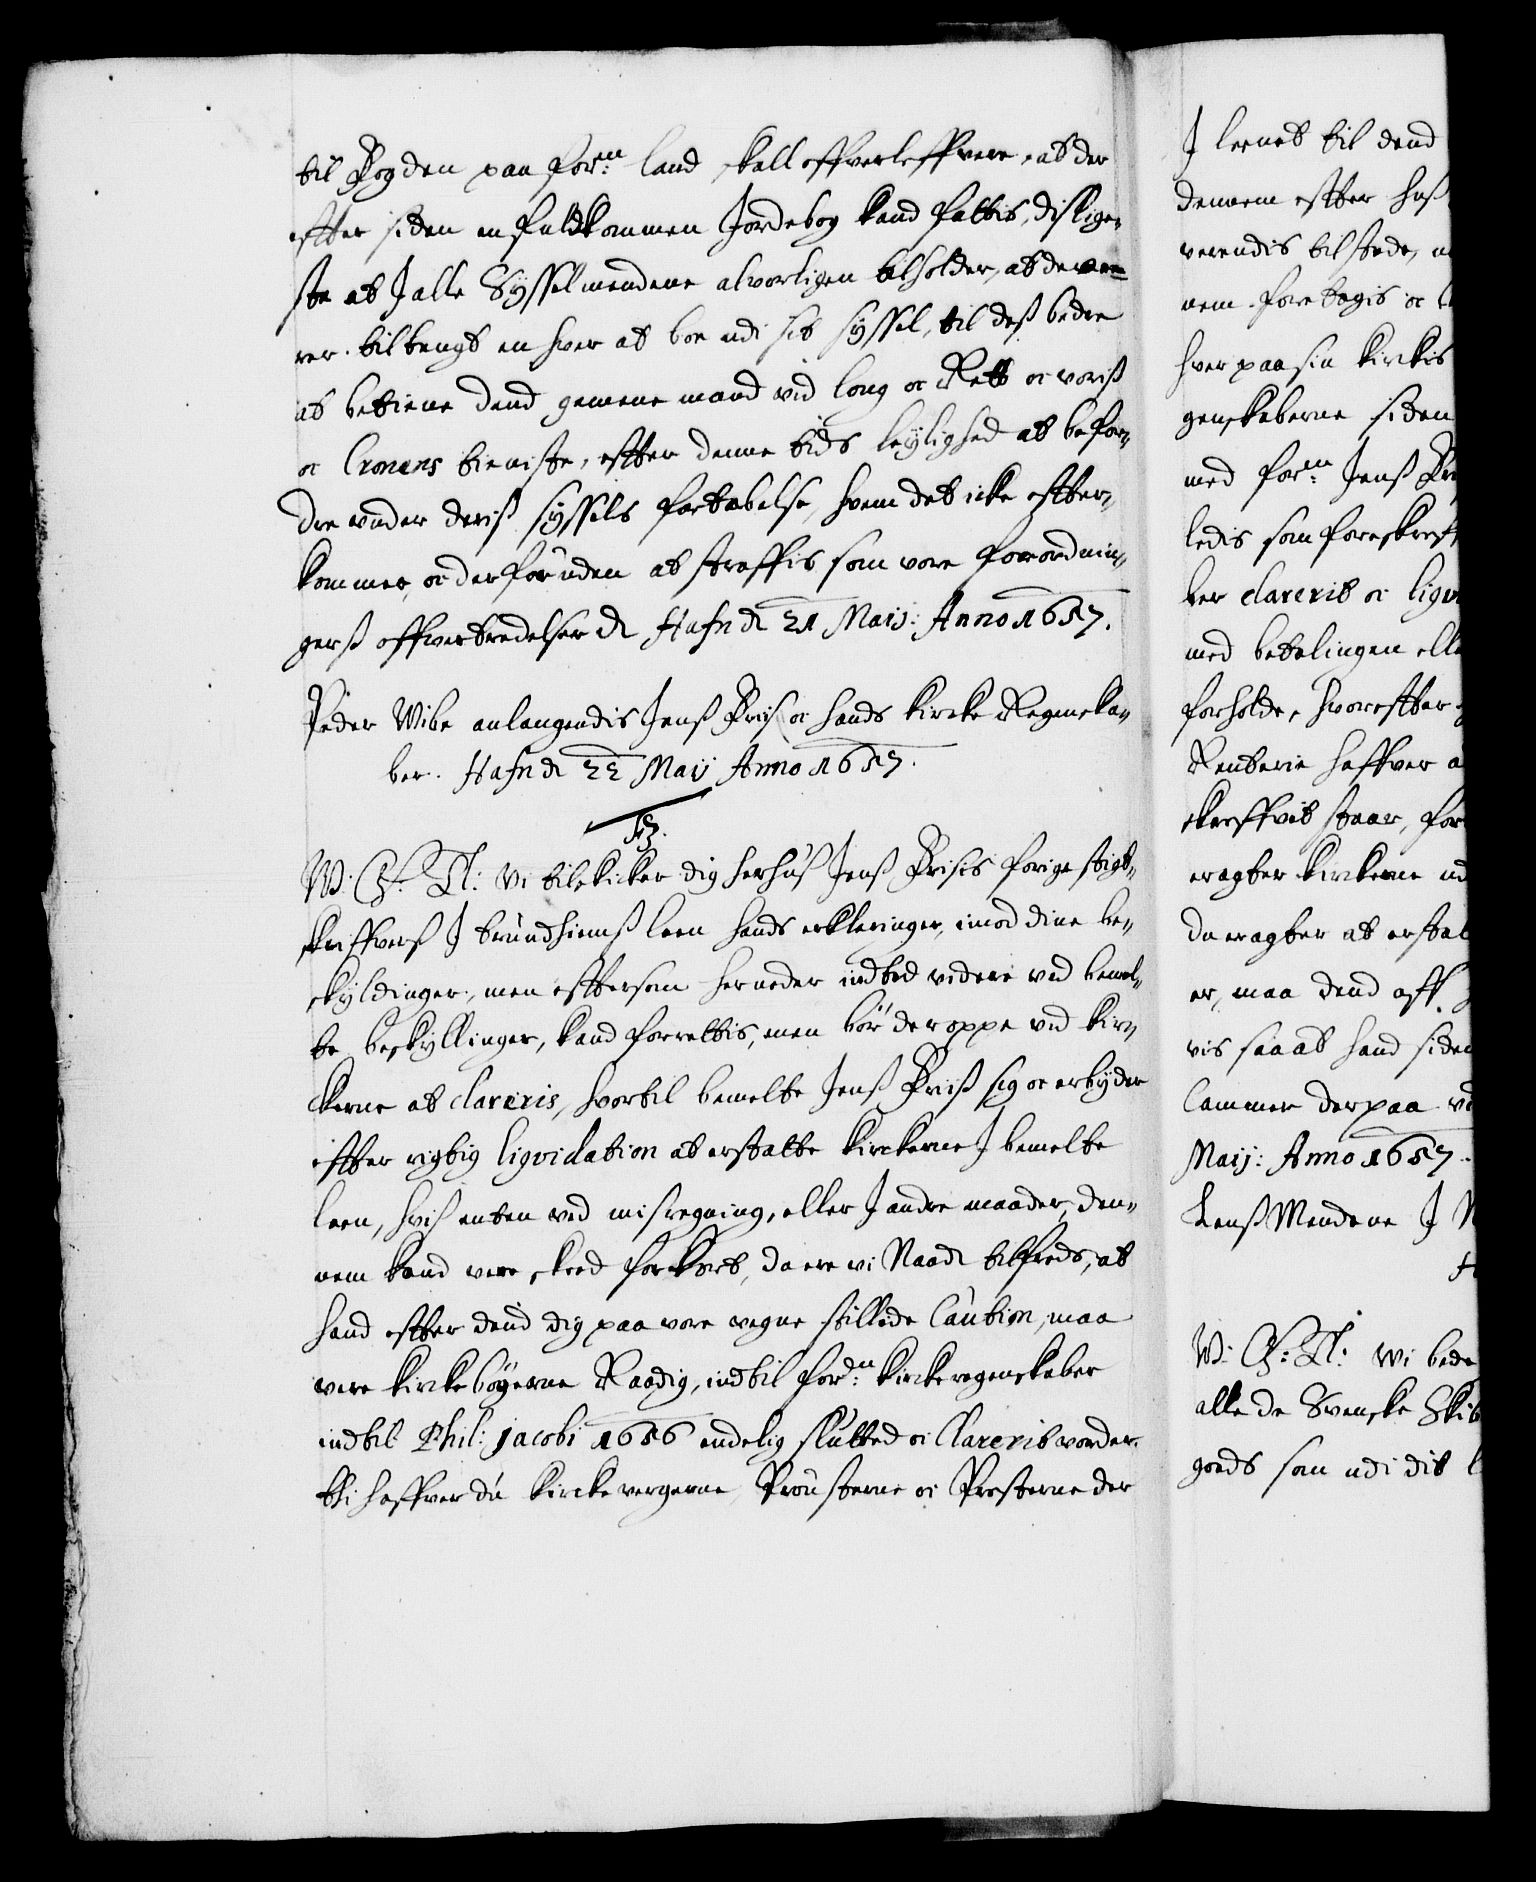 til Fogden paa for:n land skall offverleffvere, at der
effter siden en fuldkommen Jordebog kand fattis, dislige,,
ste at I alle Sysselmendene alvorligen tilholder, at de ere
tiltengt en hver at boe udi sit syssel, til dess bedre
at betiene dend gemene mand vid loug oc Rett oc voriss
oc Cronens tieniste, effter denne tids leylighed at befor,,
dre under deriss syssels fortabelse, hvem det icke effter,,
kommer, oc der foruden at straffis som vore forordnin,,
gerss offvertredelser etc Hafn etc 21 Maij: Anno 1657.
Peder Wibe anlangendis Jenss Friis oc hands Kircke Regenska,,
ber. Hafn etc 22 Maij Anno 1657.
F3.
W: G: T: Vi tilskicker dig herhuss Jenss Frisis forige stigt,,
skriffverss I trundhiemss leen hands erkleringer, imod dine be,,
skyldinger, men efftersom her neder intet videre ved bemel,,
te beskyllinger, kand forrettis, men bör der oppe ved kir,,
kerne at clareris, hvortil bemelte Jenss Friiss sig oc erbyder
effter rigtig liqvidation at erstatte kirckerne I bemelte
leen, hviss enten ved misregning, eller I andre maader, den,,
nem kand vere skeed forkort, da ere vi Naadt tilfreds, at
hand effter dend dig paa vore vegne stillede Caution, maa
vere kirckebögerne Raadig, indtil for:dn kirckeregenskaber
indtil Phil: Jacobi 1656 endelig slutted oc Clarerit vorder.
thi haffver du kirckevergerne, Prousterne oc Presterne der
I leenet til dend
dennem effter hoss
verendis tilstede,
nem foretagis oc
hver paa sin kirckis
genskaberne siden
med for:n Jenss
ledis som foreskreff
ber clarerit oc liqvi
med betalingen elle
forholde, hvoreffter
Renterie haffver
skreffvet staar, for
eragter kirckerne ud
du eragter at erstat
er, maa dend aff
vis saa at hand siden
Cammer derpaa
Maij: Anno 1657.
Lenss Mendene I N
H
W: G: T: Wi bede
alle de Svenske Skib
gods som udi dit l